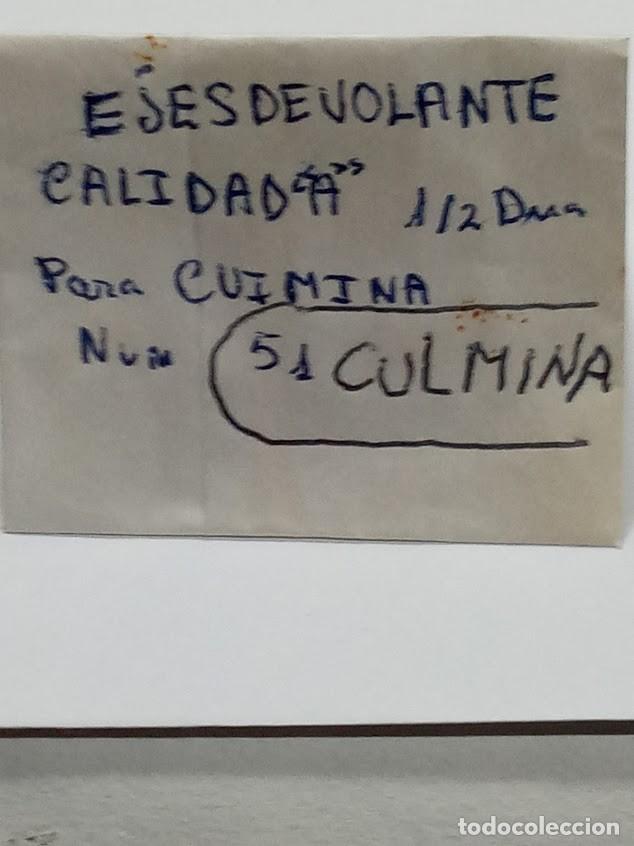 EJES DE VOLANTE
CALIDAD "A" 1/2 Dna
Para CUIMINA
Num 51 CULMINA
todocoleccion